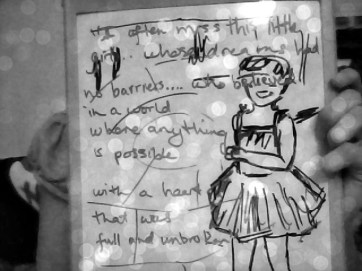 I often miss this little
girl... whose dreams had
no barriers.... who believed
in a world
where anything
is possible
with a heart
that was
full and unbroken